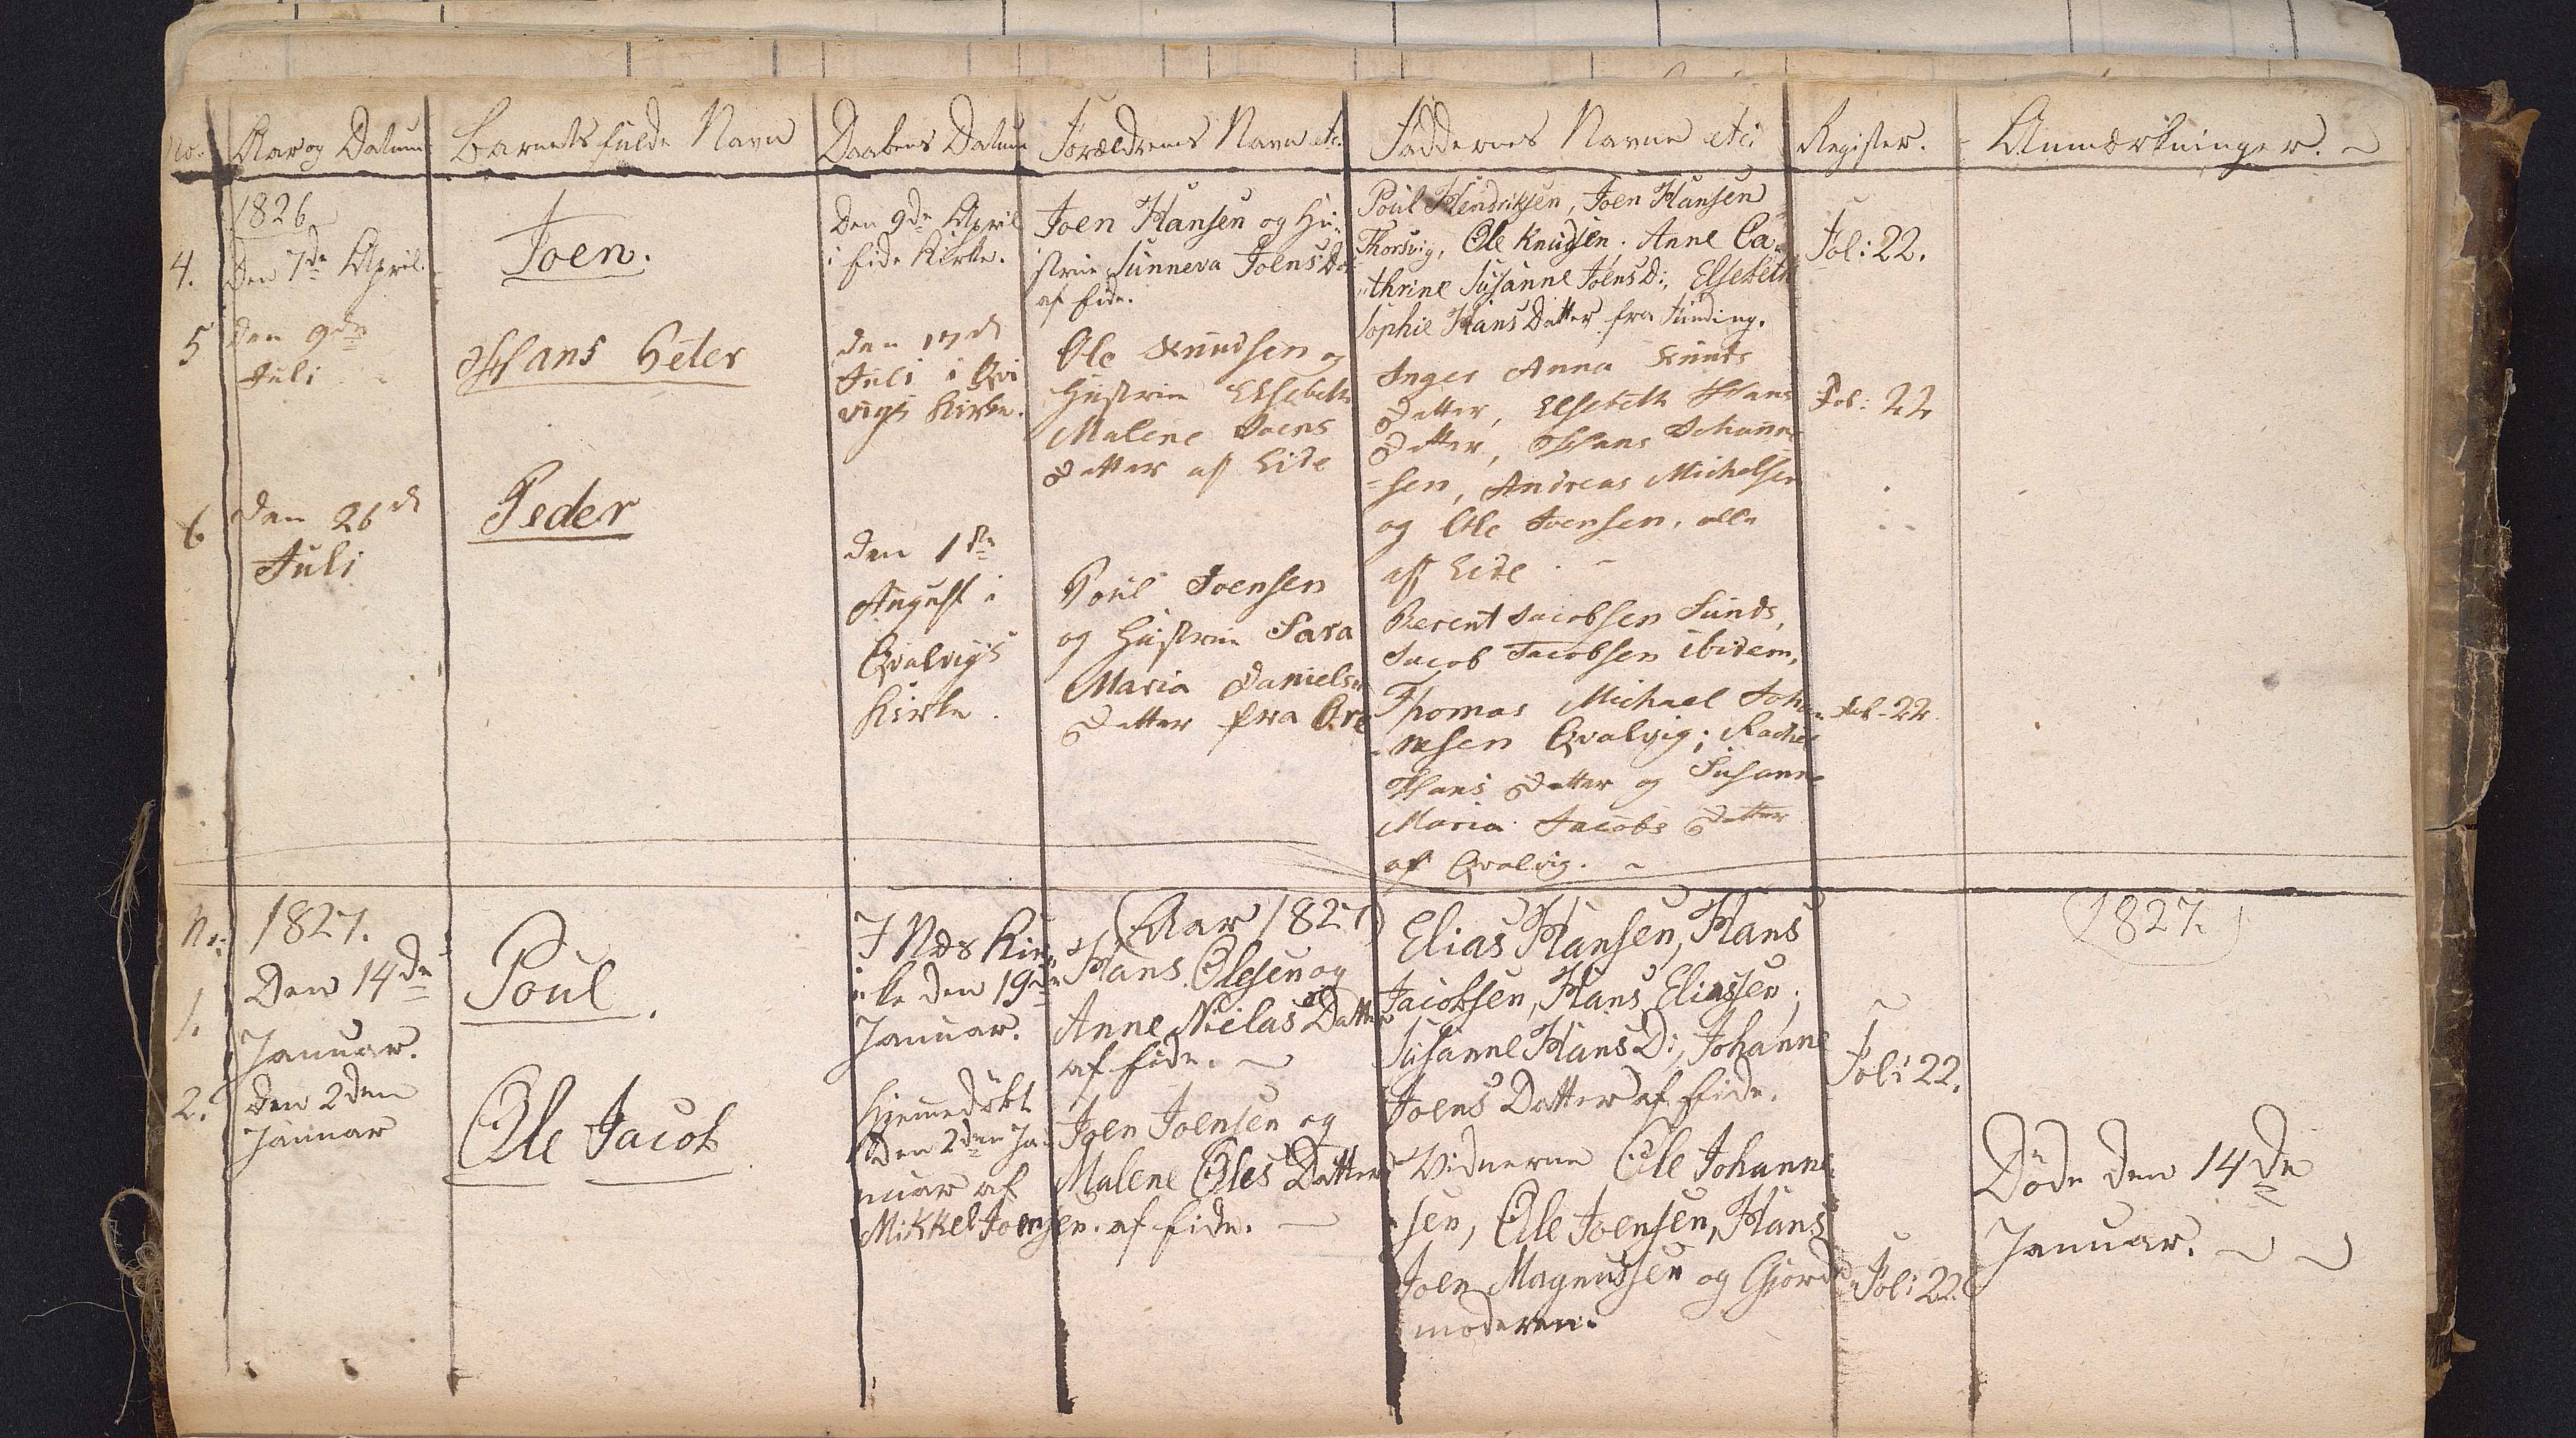 No. Aar og Datum Barnets fulde Navn Daabens Datum Forældrenes Navn etc. Faddernes Navne etc: Register. Anmærkninger.
1826
4. Den 7de April.
Joen.
Den 9de April
i Eide Kirke.
Joen Hansen og Hu-
strue Sunneva Joens D:
af Eide.
Poul Hendriksen, Joen Hansen
Thorsvig, Ole Knudsen. Anne Ca-
thrine Susanne Joens D:, Elsebeth
Sophie Hans Datter fra Funding.
Fol: 22.
5 den 9de
Juli
Hans Peter
den 17de
Juli i Qvi
vigs Kirke.
Ole Knudsen og
Hustrue Elsebeth
Malene Joens
Datter af Eide
Inger Anna Knuds
Datter, Elsebeth Hans
Datter, Hans Johanne
=sen, Andreas Michelsen
og Ole Joensen, alle
af Eide.
Fol: 22
6 den 26de
Juli
Peder
den 1ste
August i
Qvalvigs
Kirke.
Poul Joensen
og Hustrue Sara
Maria Daniels
Datter fra Ore
Berent Jacobsen Sunds,
Jacob Jacobsen ibidem,
Thomas Michael Joha
nesen Qvalvig; Rachel
Hans Datter og Susanne
Maria Jacobs Datter
af Qvalvig.
Fol: 22
No: 1827.
1. Den 14de
Januar.
Poul.
I Nds Kir-
ke den 19de
Januar.
(Aar 1827)
Hans Olesen og
Anne Nielas Datter
af Eide.
Elias Hansen, Hans
Jacobsen, Hans Eliassen,
Susanne Hans D:, Johanne
Joens Datter af Eide.
Fol: 22.
(1827.)
2. den 2den
Januar
Ole Jacob
Hjemedøbt
den 2den Ja-
nuar af
Mikkel Joensen.
Joen Joensen og
Malene Oles Datter
af Eide.
Vidnerne Ole Johanne
sen, Ole Joensen, Hans
Joen Magnussen og Gjord
moderen.
Fol: 22.
Døde den 14de
Januar.